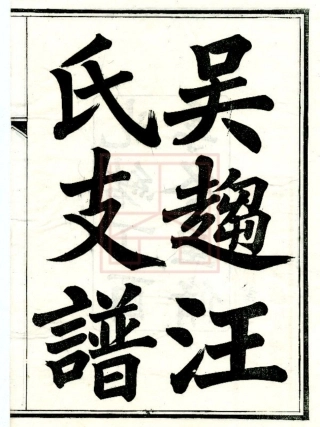 吴趨汪
氏支譜